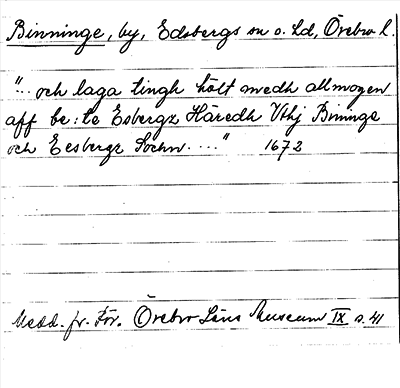 Binninge, by, Edsbergs sn o. hd, Örebro l.
"... och laga tingh hölt medh allmogen
aff be:te Esbergz Häredh Vthj Bininge
och Eesbergz Sochn. ...." 1672
Medd. fr. För. Örebro Läns Museum IX s. 41